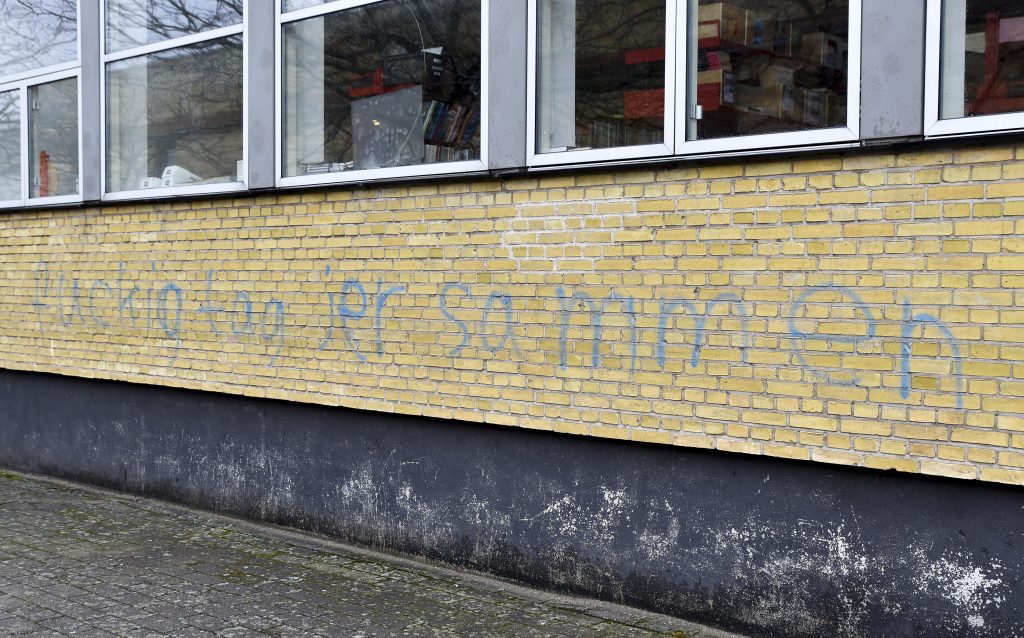 fuckig tag jer sammen